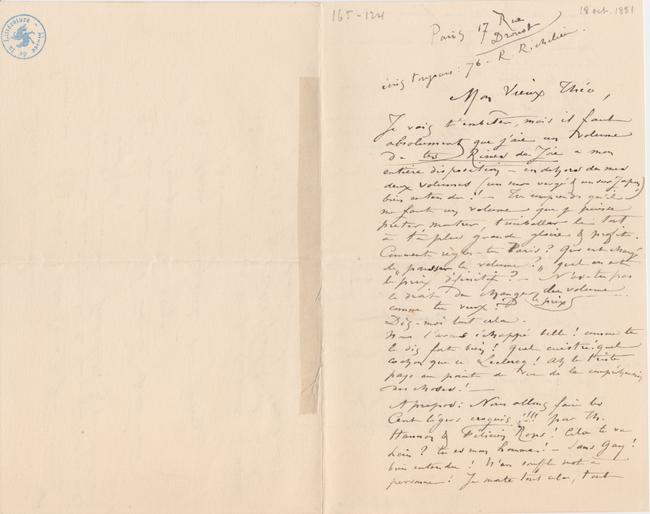 Musée de la Littérature
165-124
18 oct. 1881
Paris 17 Rue
Drouot
écris toujours: 76. R. Richelieu.
Mon Vieux Théo,
Je vais t'embêter, mais il faut
absolument que j'aie un volume
de tes Rimes de Joie à mon
entière disposition — en dehors de mes
deux volumes (un mon vergé & un mon Japon)
bien entendu! — Tu comprends qu'il
me faut un volume que je puisse
prêter, montrer, trimballer le tout
à ta plus grande gloire & profit.
Comment règles-tu Paris? Qui est chargé
de "pousser le volume?" quel en est
le prix définitif? — N'as-tu pas
le droit de changer du volume
comme tu veux? le prix
Dis-moi tout cela.
Nous l'avons échappé belle! comme tu
le dis fort bien! Quel cuistre, quel
cochon que ce Leclercq! Ah le triste
pays au point de vue de la compréhension
des choses! —
A propos: Nous allons faire les
Cent légers croquis!!!! par Th.
Hannon & Félicien Rops! Cela te va
hein? tu es mon homme! — Sans Gay!
bien entendu! N'en souffle mot à
personne! Je mate tout cela, tout